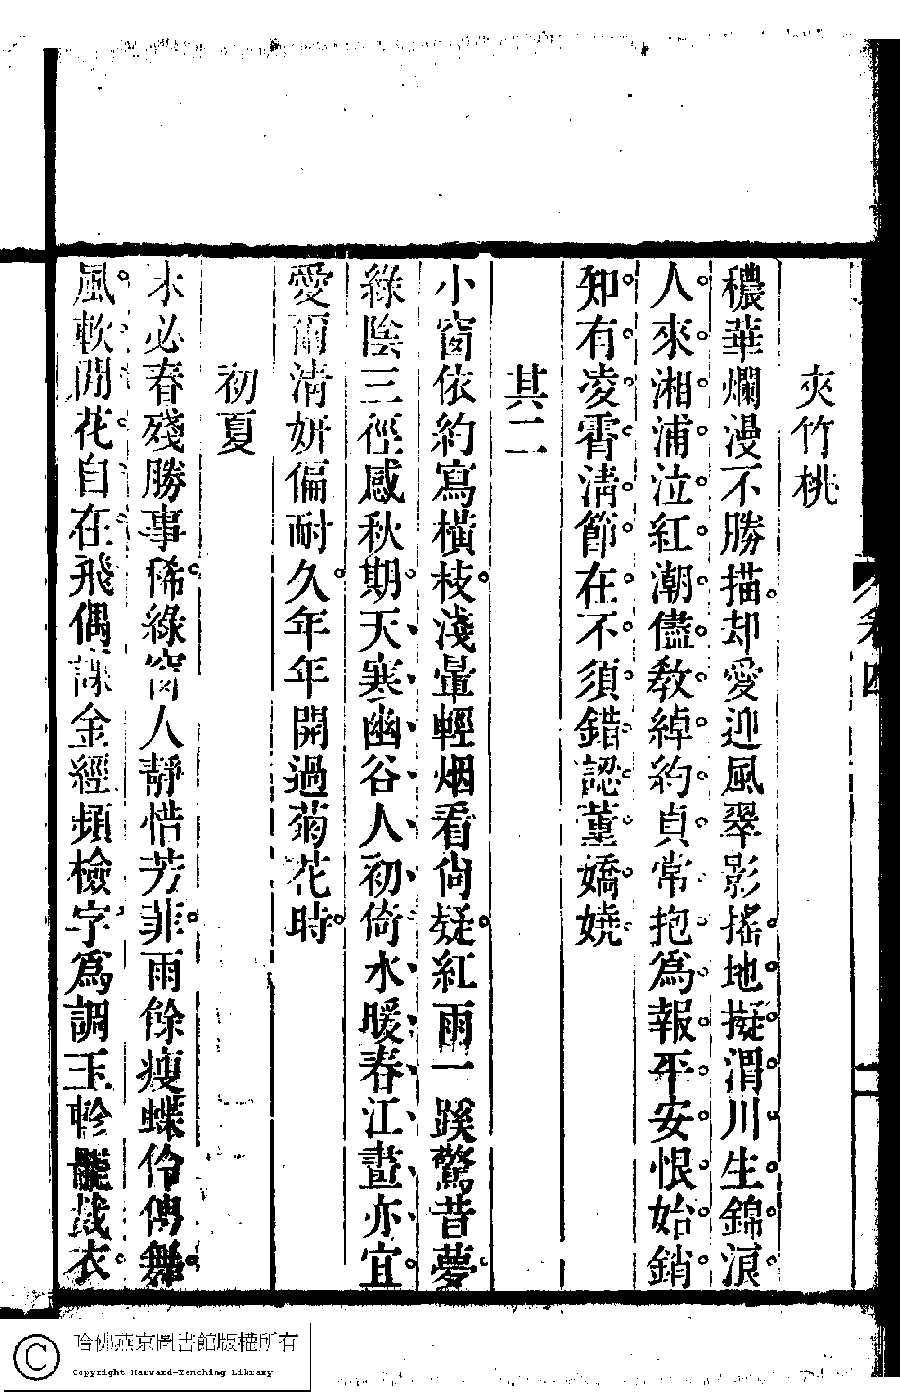 夾竹桃
穠華爛漫不勝描却愛迎風翠影搖地擬渭川生錦浪
人來湘浦泣紅潮儘敎綽約貞常抱爲報平安恨始銷
知有凌霄淸節在不須錯認董嬌嬈
其二
小窗依約寫橫枝淺暈輕烟看尙疑紅雨一蹊驚昔夢
綠陰三徑感秋期天寒幽谷人初倚水暖春江晝亦宜
愛爾淸妍偏耐久年年開過菊花時
初夏
未必春殘勝事稀綠窗人靜惜芳菲雨餘瘦蝶伶俜舞
風軟閒花自在飛偶課金經頻檢字爲調玉軫罷裁衣
卷四
二
哈佛燕京圖書館版權所有
Copyright Harvard-Yenching Library